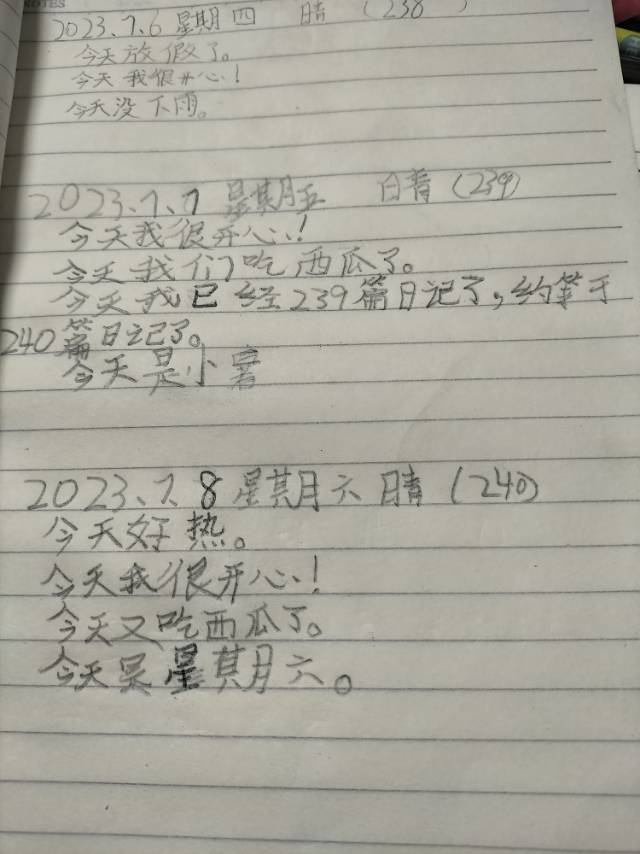 NOTES
2023.7.6 星期四 晴 (238)
今天放假了。
今天我很开心!
今天没下雨。
2023.7.7 星期五 晴 (239)
今天我很开心!
今天我们吃西瓜了。
今天我已经239篇日记了,约等于
240篇日记了。
今天是小暑
2023.7.8 星期六 晴 (240)
今天好热。
今天我很开心!
今天又吃西瓜了。
今天是星期六。